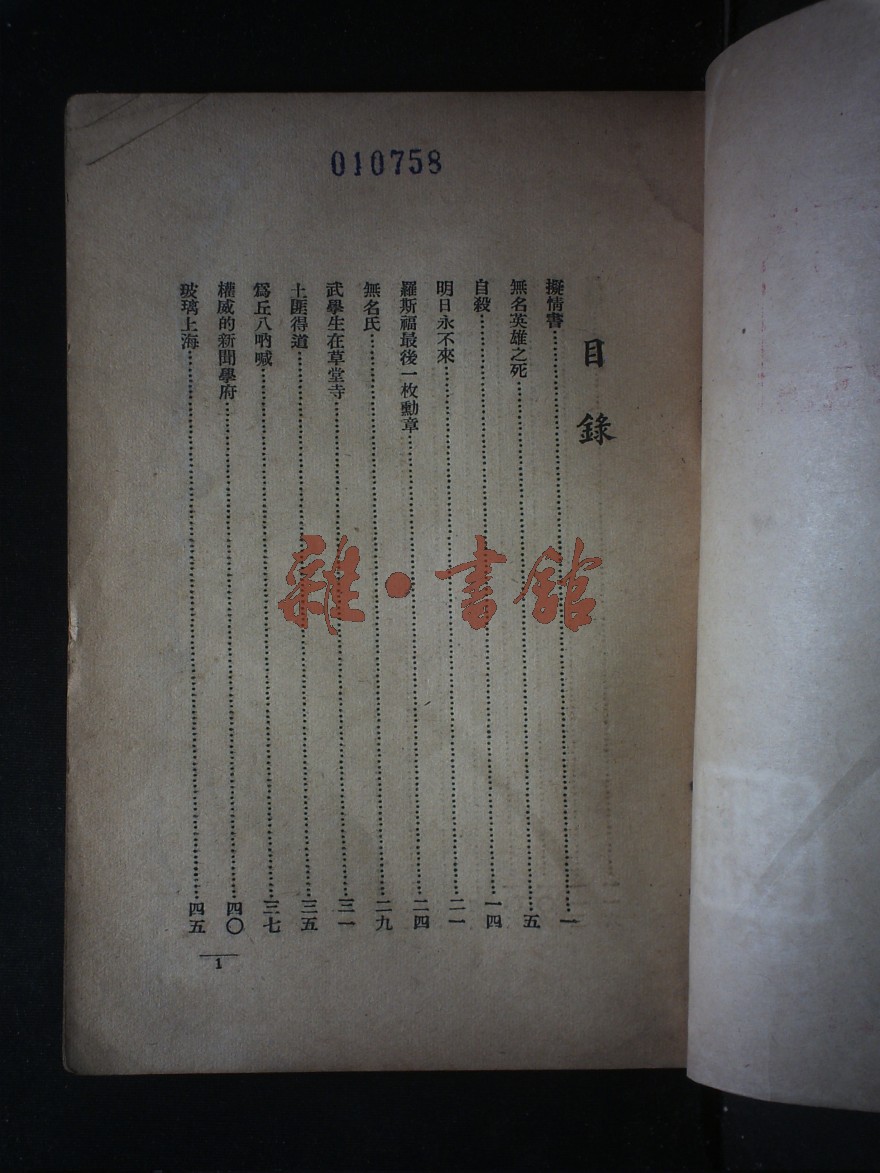 010758
目錄
擬情書一
無名英雄之死五
自殺一四
明日永不來二一
羅斯福最後一枚勳章二四
無名氏二九
武學生在草堂寺三一
土匪得道三五
爲丘八吶喊三七
權威的新聞學府四〇
玻璃上海四五
1
雜·書館